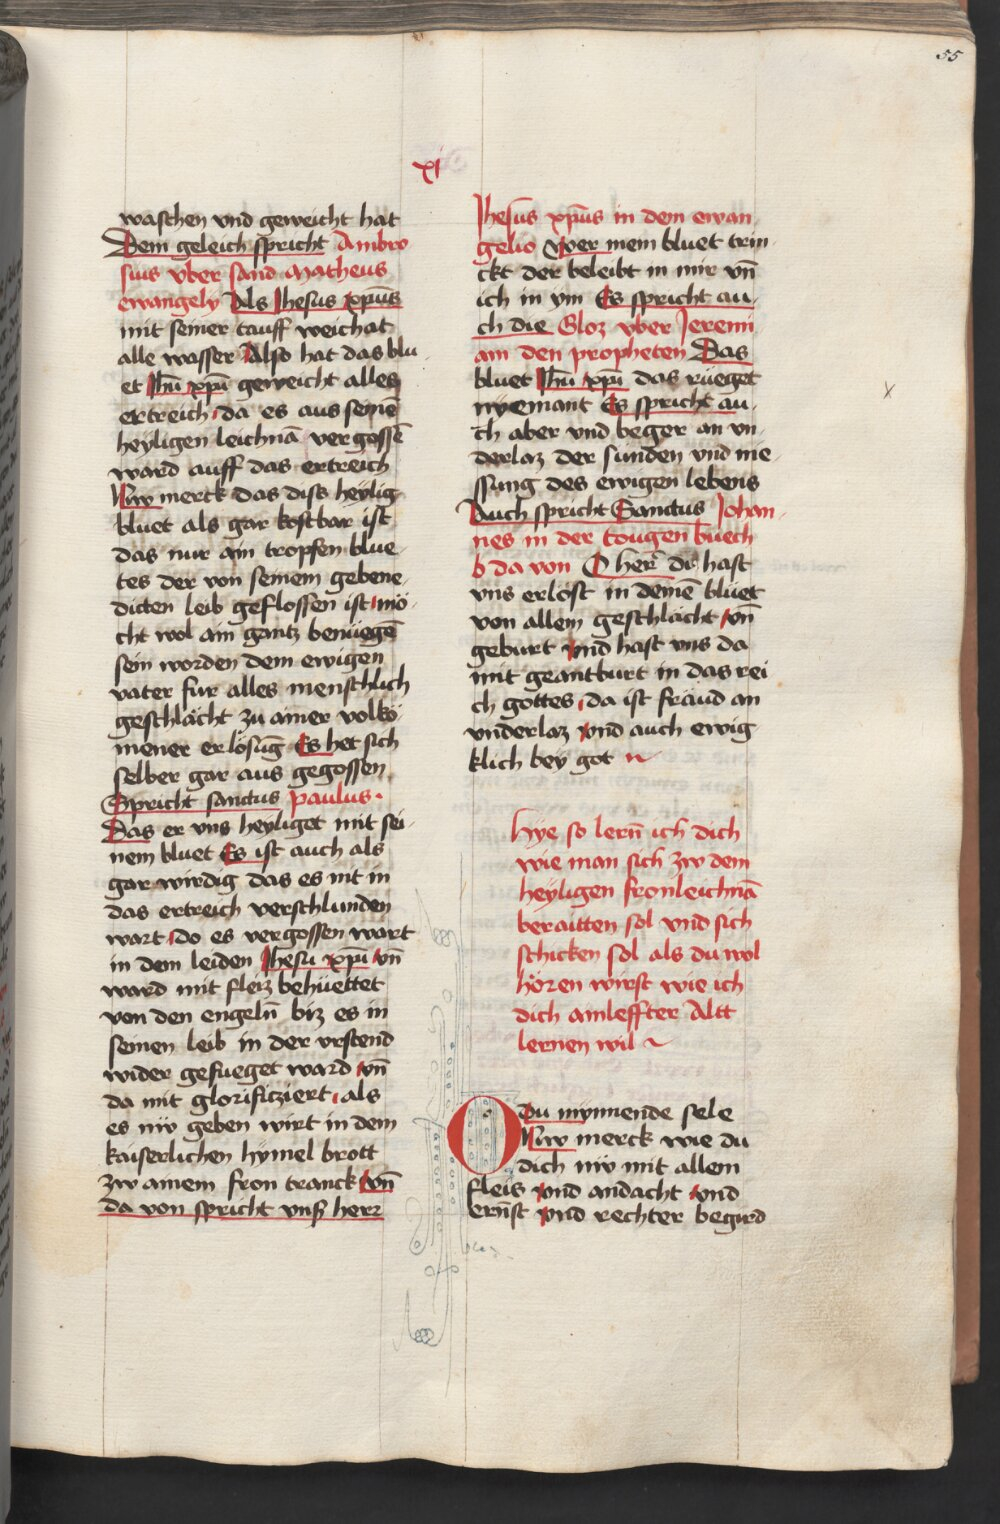 55
xi
waschen vnd geweicht hat
Dem geleich spricht Ambro
sius vber sand Matheus
ewangely Als Jhesus xpūs
mit seiner tauff weichat
alle wasser Also hat das blu
et Jhū xpī geweicht alles
ertreich da es aus seinē
heyligen leichnā vergossē
ward auff das ertreich
Nw merck das diss heylig
bluet als gar kostbar ist
das nur ain tropfen blue
tes der von seinem gebene
dicten leib geflossen ist mö
cht wol ain gantz benüegē
sein worden dem ewigen
vater fur alles menschlich
geschlächt zu ainer volkō
mener erlösūg Es het sich
selber gar aus gegossen
Spricht sanctus paulus
Das er vns heyliget mit sei
nem bluet Es ist auch als
gar wirdig das es nit in
das ertreich verschlunden
wart do es vergossen wart
in dem leiden Jhesu xpī vn̄
ward mit fleiz behüettet
von den engeln̄ biz es in
seinen leib in der vrstend
wider gefueget ward vn̄
da mit glorificziert als
es nw geben wirt in dem
kaiserlichen hymel brott
zw ainem fron tranck vn̄
da von spricht vnß herr
Jhesus xpūs in dem ewan
gelio Wer mein bluet trin
ckt der beleibt in mir vn̄
ich in ym Es spricht au
ch die Gloz vber Jeremi
am den propheten Das
bluet Jhū xpī das rüeget
nyemant Es spricht au
ch aber vnd beger an vn
derlaz der sunden vnd nie
ssung des ewigen lebens
Auch spricht Sanctus Johan
nes in der tougen buech
b da von O her̄ du hast
vns erlöst in deinē blüet
von allem geschlächt vn̄
geburt vnd hast vns da
mit geantburt in das rei
ch gottes da ist fräud an
vnderlaz vnd auch ewig
klich bey got
Hye so lern̄ ich dich
wie man sich zw dem
heyligen fronleichnā
beraitten sol vnd sich
schicken sol als du wol
hören wirst wie ich
dich ainleffter Altt
lernen wil
O Du mynnende sele
Nw merck wie du
dich nw mit allem
fleis vnd andacht vnd
ern̄st vnd rechter begird